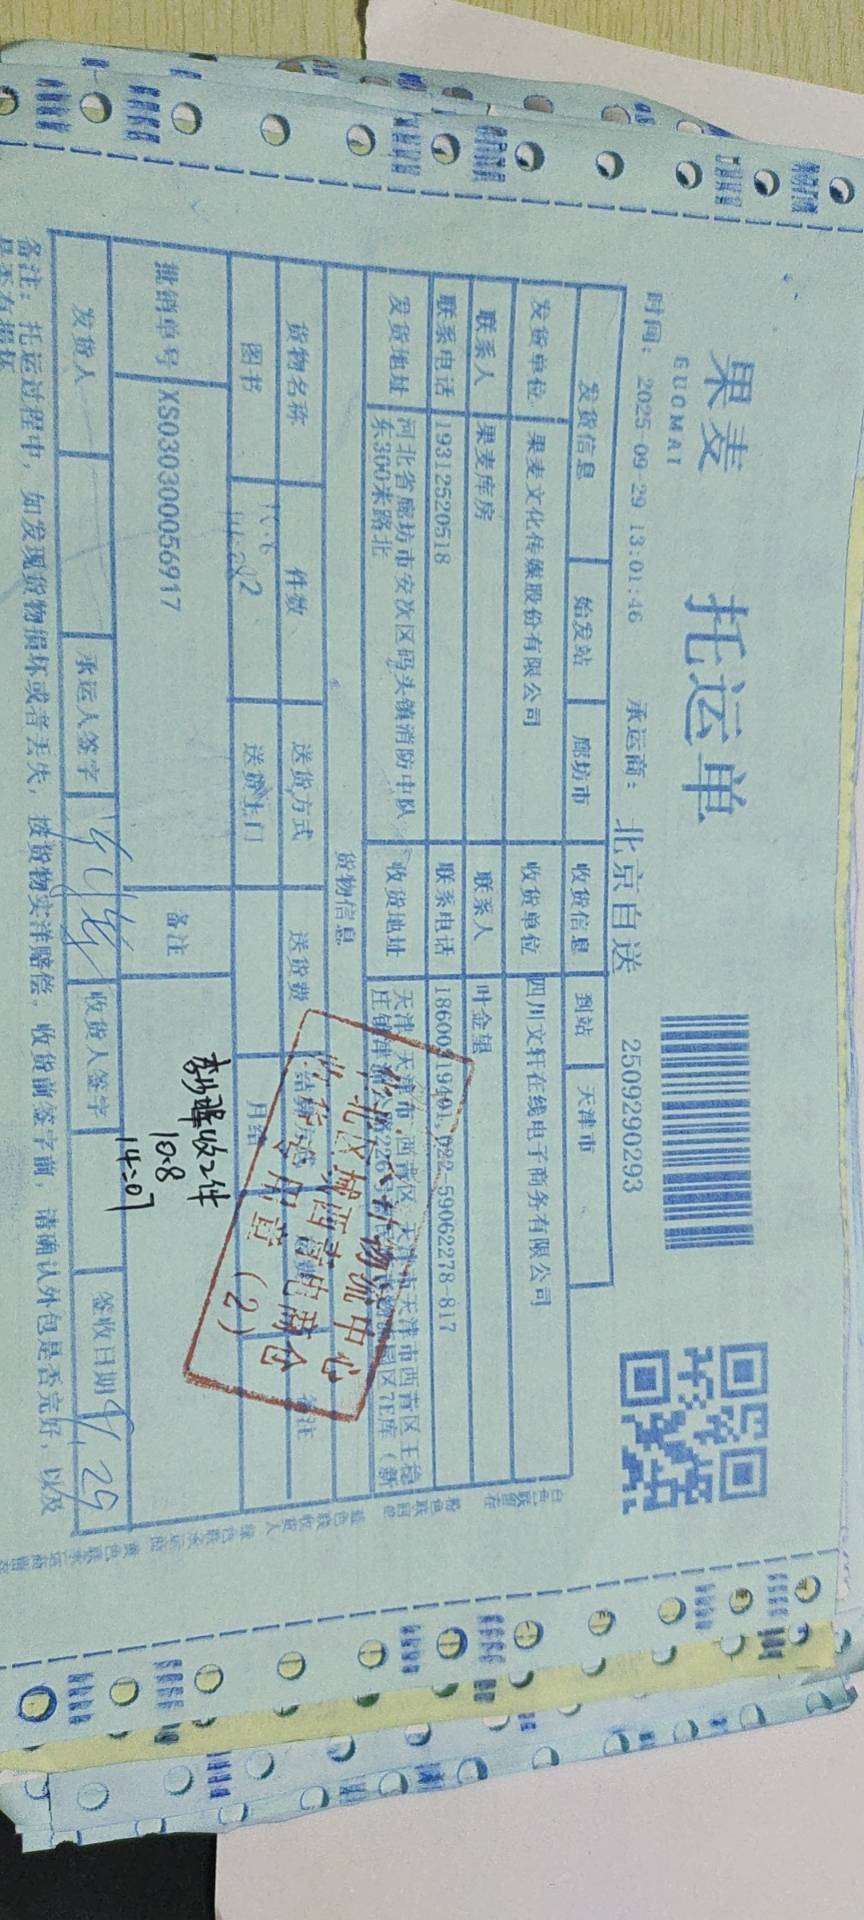 果麦
GUOMAI
托运单
时间: 2025-09-29 13:01:46 承运商: 北京自送 2509290293
发货信息 始发站 廊坊市 收货信息 到站 天津市
发货单位 果麦文化传媒股份有限公司 收货单位 四川文轩在线电子商务有限公司
联系人 果麦库房 联系人 叶金望
联系电话 19312520518 联系电话 022-59062278-817
发货地址 河北省廊坊市安次区码头镇消防中队东300米路北 收货地址 天津 天津市 西青区 天津市天津市西青区王稳庄镇
货物信息
货物名称 件数 送货方式 送货费 备注
图书 送货上门 月结
批销单号 XS030300056917 备注
收2件
10.8
14:07
发货人 承运人签字 收货人签字 签收日期 9.29
备注: 托运过程中, 如发现货物损坏或者丢失, 按货物实洋赔偿, 收货前签字前, 请确认外包是否完好, 以及
是否有损坏
华北区域物流中心
西青电商仓
收货专用章 (2)
白色联留存
粉色联回单
蓝色联收货人